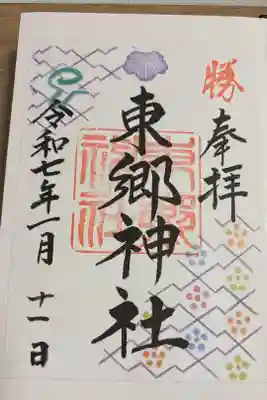 勝
奉拝
東郷神社
令和七年一月十一日